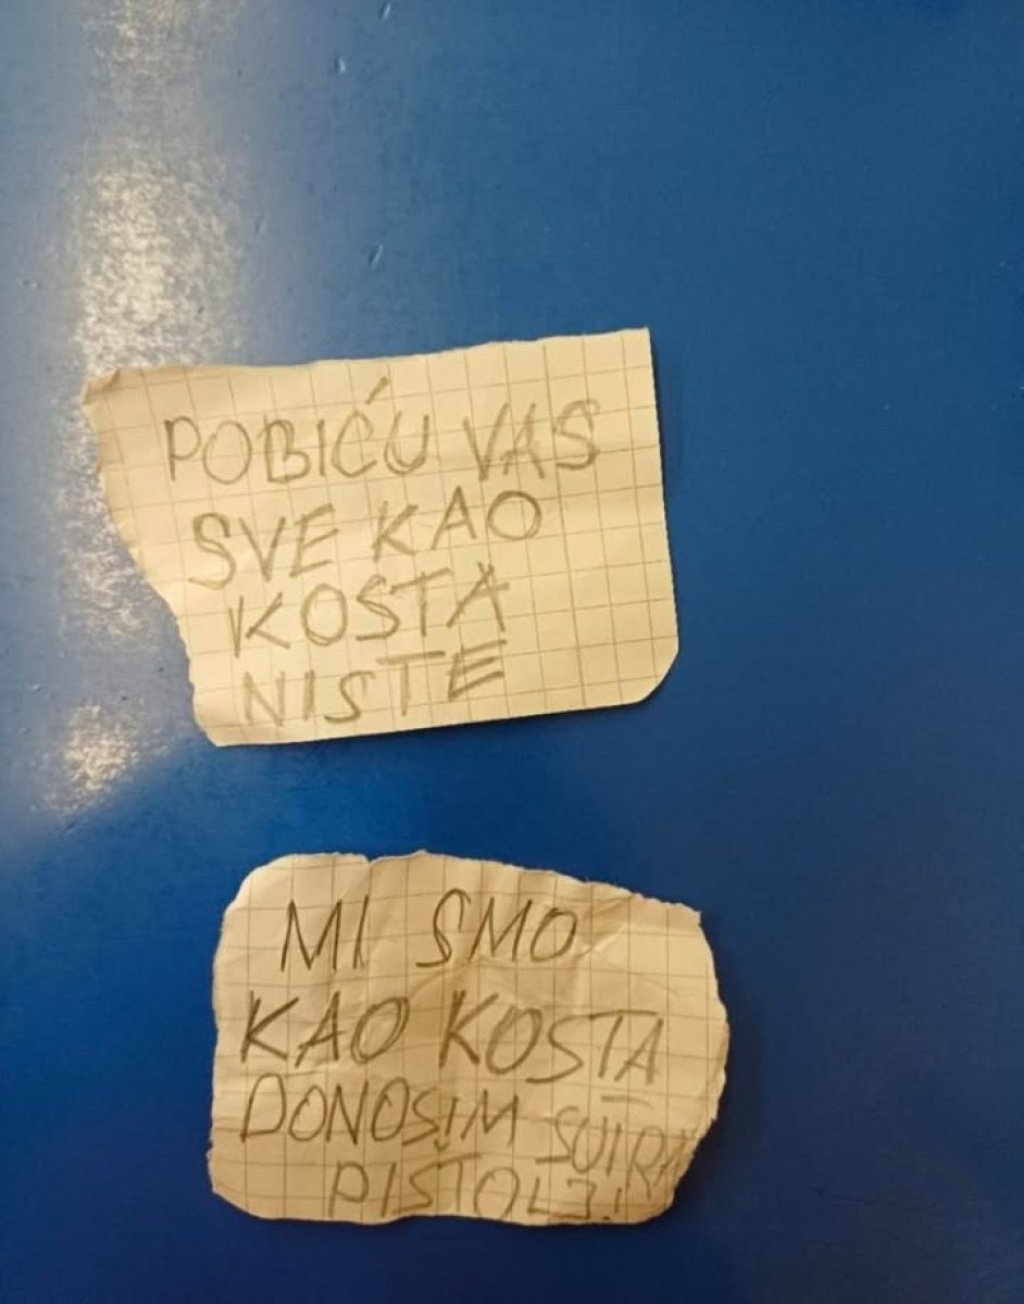 POBIĆU VAS
SVE KAO
KOSTA
NISTE
MI SMO
KAO KOSTA
DONOSIM SUTRA
PIŠTOLJ!